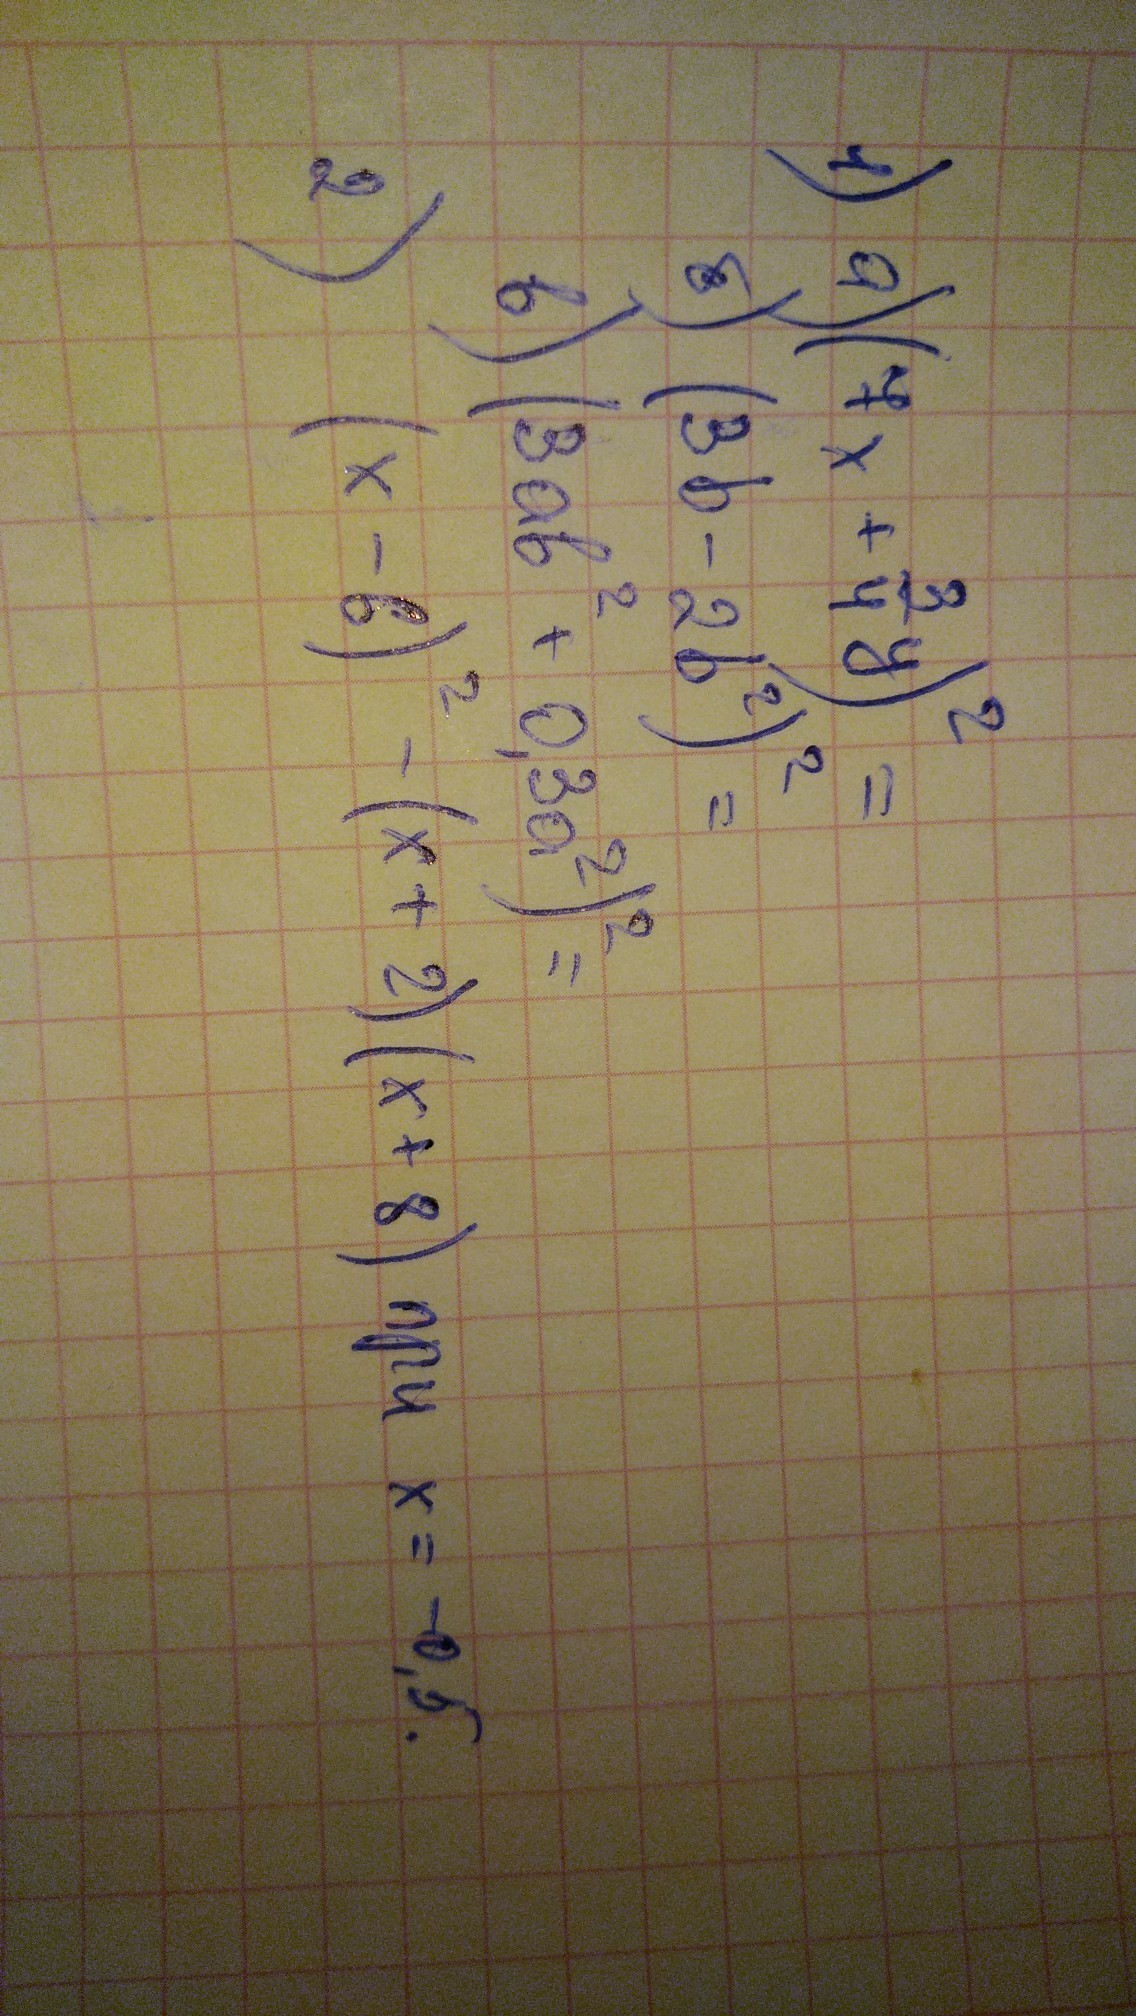 1) а) (7x + 3/4 y)² =
б) (3b - 2b²)² =
в) (3ab² + 0,3a²)² =
2) (x - 6)² - (x + 2)(x + 8) при x = -0,5.